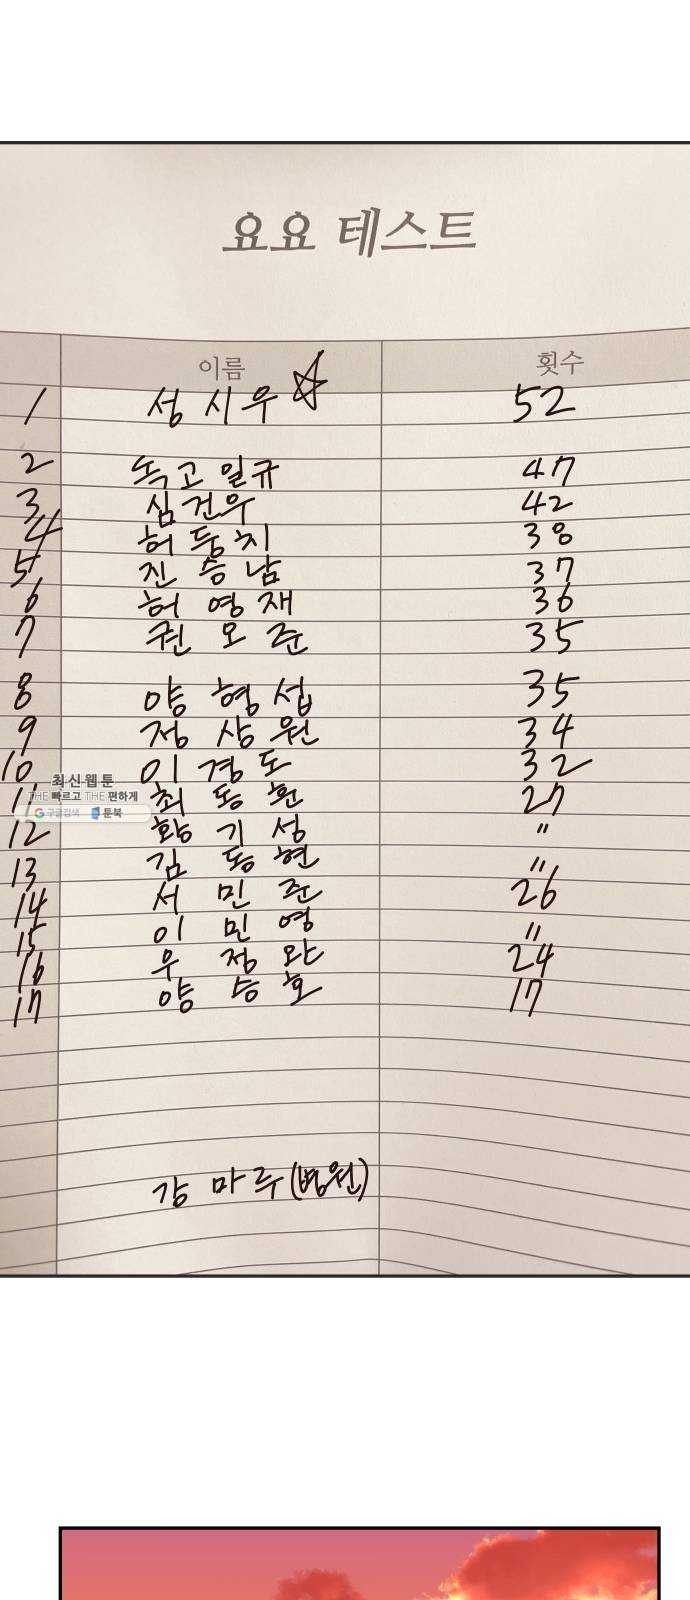 요요 테스트
이름 횟수
1 성시우☆ 52
2 독고일규 47
3 심건우 42
4 허둥치 38
5 진승남 37
6 허영재 36
7 권오준 35
8 양형섭 35
9 정상원 34
10 이경도 32
최신웹툰
THE 빠르고 THE 편하게
G 구글검색 툰북
11 최동훈 27
12 황기성 〃
13 김동현 〃
14 서민준 26
15 이민영 〃
16 우정완 24
17 양승호 17
강마루(병원)